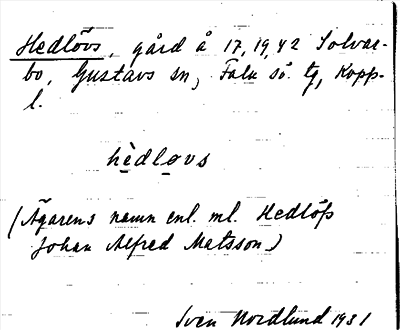 Hedlövs, gård å 17, 19, 42 Solvar-
bo, Gustavs sn, Falu sö. tg, Kopp.
l.
hèdløvs
(Ägarens namn enl. ml. Hedlöfs
Johan Alfred Matsson.)
Sven Nordlund 1931